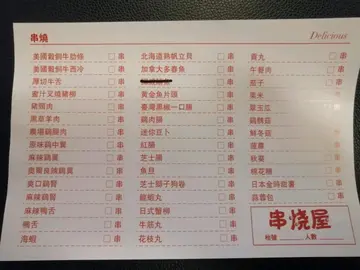 串燒
Delicious
美國穀飼牛肋條 串
美國穀飼牛西冷 串
厚切牛舌 串
蜜汁叉燒豬柳 串
豬頸肉 串
黑草羊肉 串
農場雞腿肉 串
原味雞中翼 串
麻辣雞翼 串
奧爾良辣雞翼 串
爽口雞腎 串
麻辣雞腎 串
麻辣鴨舌 串
鴨舌 串
海蝦 串
北海道熟帆立貝 串
加拿大多春魚 串
串
黃金魚片頭 串
臺灣黑椒一口腸 串
雞肉腸 串
迷你豆卜 串
紅腸 串
芝士腸 串
魚旦 串
芝士獅子狗卷 串
龍蝦丸 串
日式蟹柳 串
牛筋丸 串
花枝丸 串
貢丸 串
午餐肉 串
茄子 串
粟米 串
翠玉瓜 串
雞髀菇 串
鮮冬菇 串
蓮藕 串
秋葵 串
棉花糖 串
日本金時蕃薯 串
蒜蓉包 串
串烧屋
檯號 人數